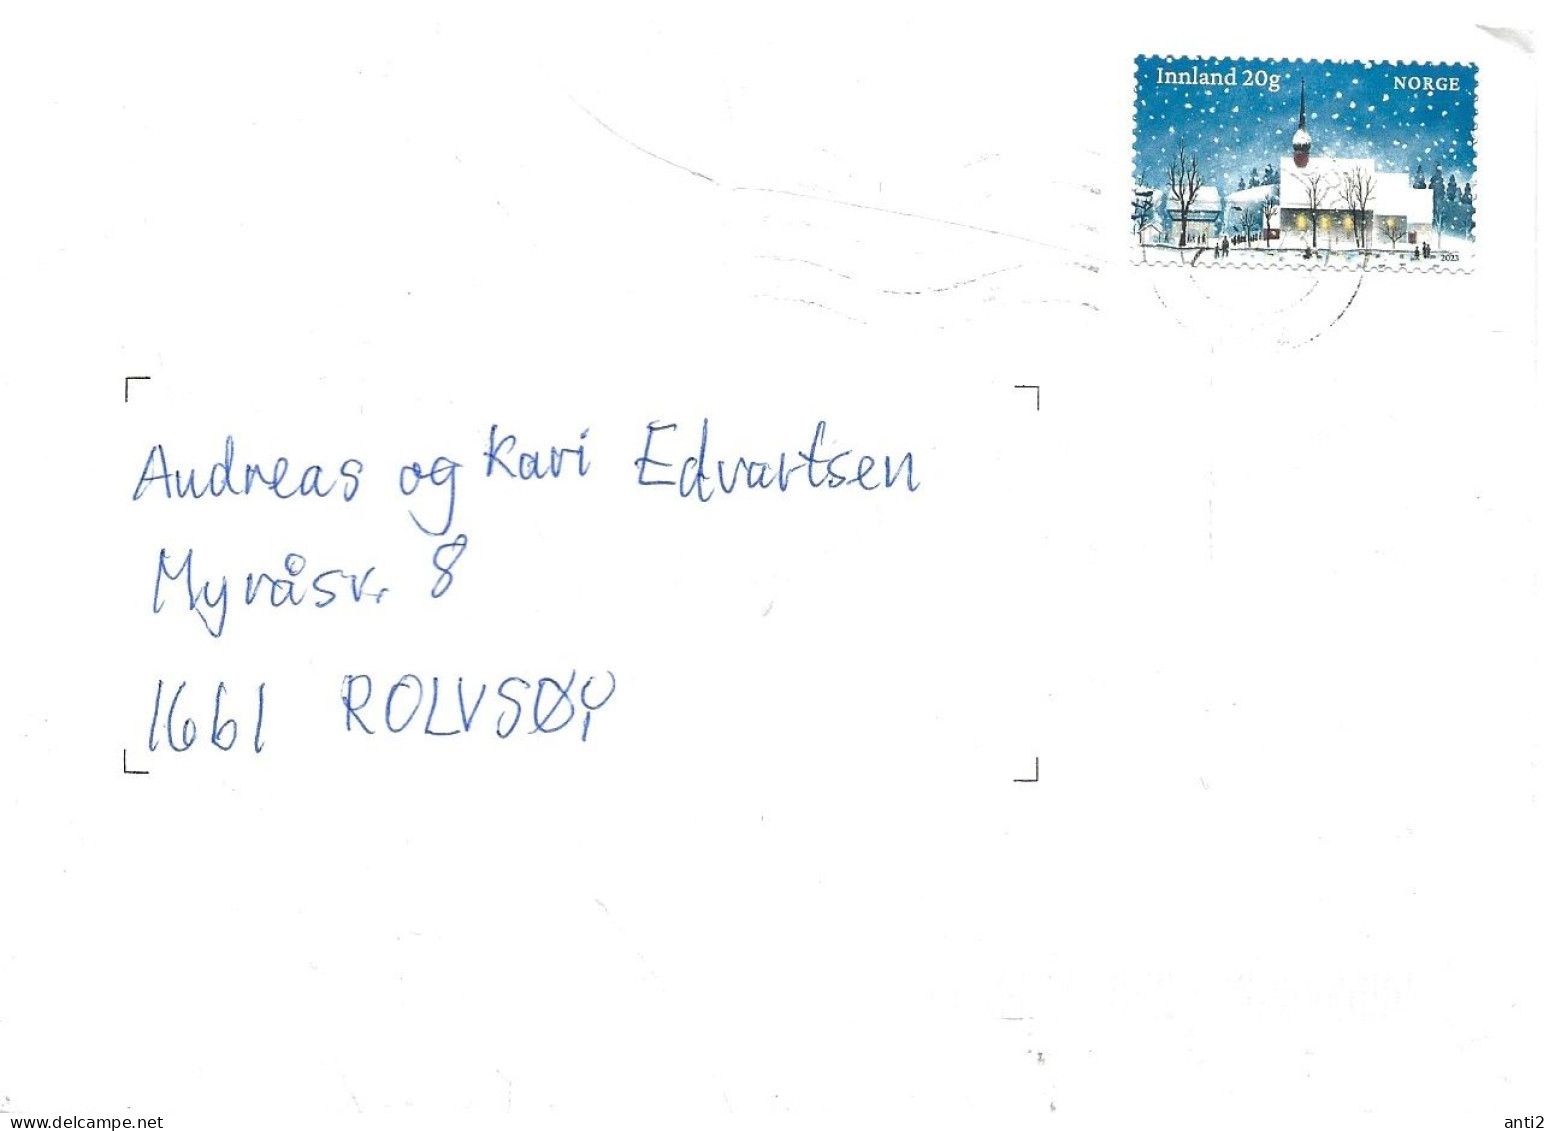 Innland 20g NORGE
2023
Andreas og Kari Edvartsen
Myråsv. 8
1661 ROLVSØY
www.delcampe.net
anti2